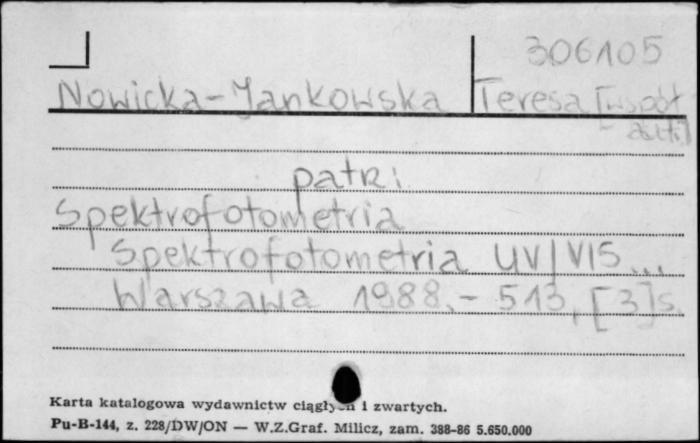 306105
Nowicka-Jankowska Teresa [współ
aut.]
patrz:
Spektrofotometria
Spektrofotometria UV/VIS ...
Warszawa 1988.- 513, [3] s.
Karta katalogowa wydawnictw ciągłych i zwartych.
Pu-B-144, z. 228/DW/ON — W.Z.Graf. Milicz, zam. 388-86 5.650.000